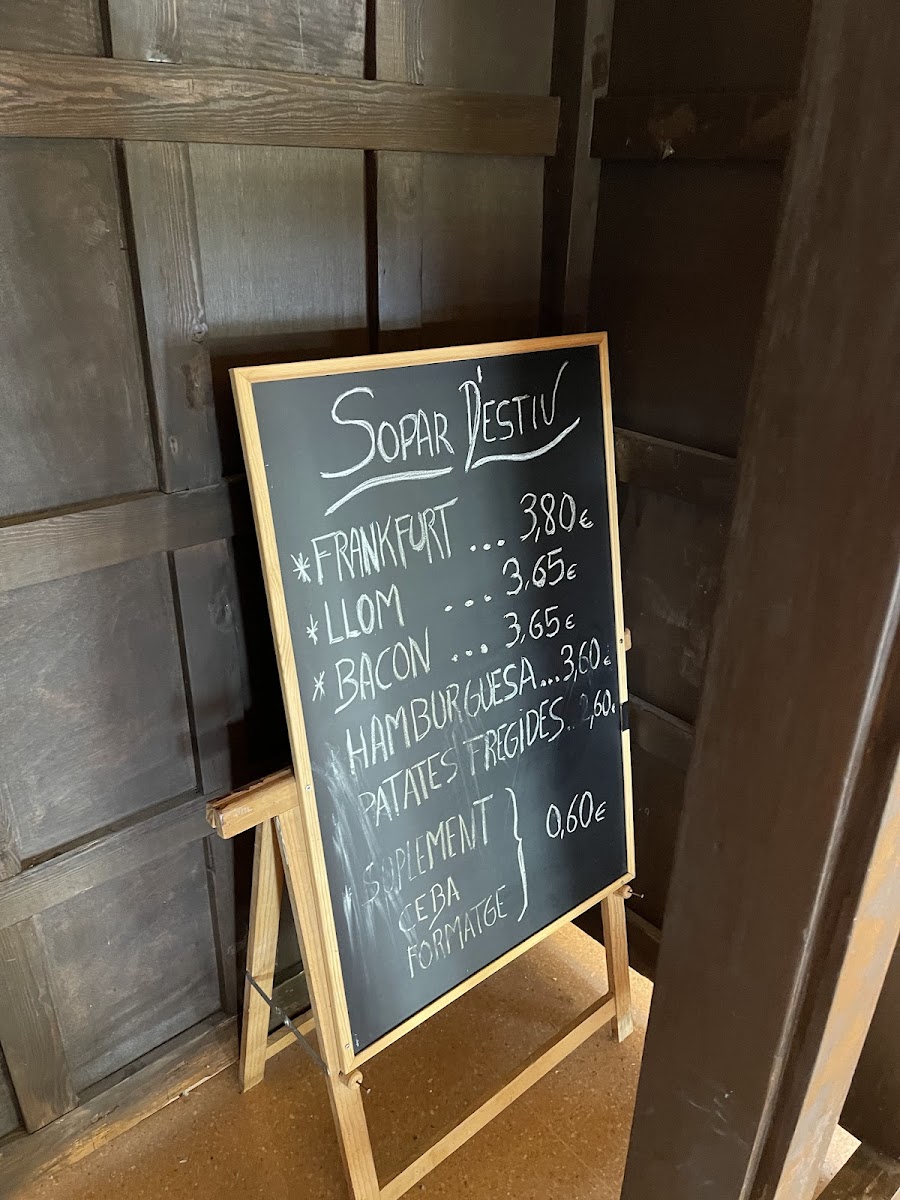 SOPAR D'ESTIU
*FRANKFURT ... 3,80€
*LLOM ... 3,65€
*BACON ... 3,65€
HAMBURGUESA... 3,60€
PATATES FREGIDES.. 2,60€
* SUPLEMENT } 0,60€
CEBA
FORMATGE